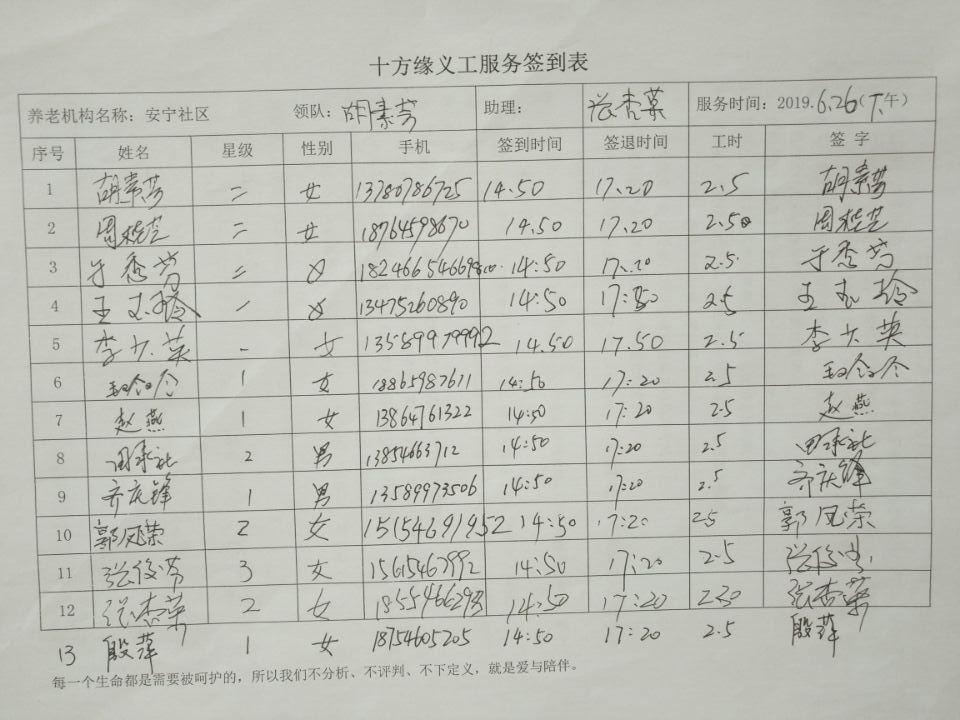 十方缘义工服务签到表
养老机构名称：安宁社区 领队：胡素芳 助理：张杏荣 服务时间：2019.6.26（下午）
序号 姓名 星级 性别 手机 签到时间 签退时间 工时 签 字
1 胡素芳 二 女 13780786725 14.50 17.20 2.5 胡素芳
2 周桂芝 二 女 18764598670 14.50 17.20 2.5 周桂芝
3 于秀芳 二 女 14:50 17.20 2.5. 于秀芳
4 王玉玲 一 女 13475260890 14:50 17:50 2.5 王玉玲
5 李大英 一 女 13589979992 14.50 17.50 2.5 李大英
6 1 女 18865987611 14:50 17:20 2.5
7 赵燕 1 女 13864761322 14:50 17:20 2.5 赵燕
8 田承社 2 男 13854663712 14:50 17:20 2.5 田承社
9 齐庆锋 1 男 13589973506 14:50 17:20 2.5 齐庆锋
10 郭凤荣 2 女 15154691952 14:50 17:20 2.5 郭凤荣
11 张俊芳 3 女 15615467992 14:50 17:20 2.5 张俊芳
12 张杏荣 2 女 14:50 17:20 230 张杏荣
13 殷萍 1 女 18754605205 14:50 17:20 2.5 殷萍
每一个生命都是需要被呵护的，所以我们不分析、不评判、不下定义，就是爱与陪伴。